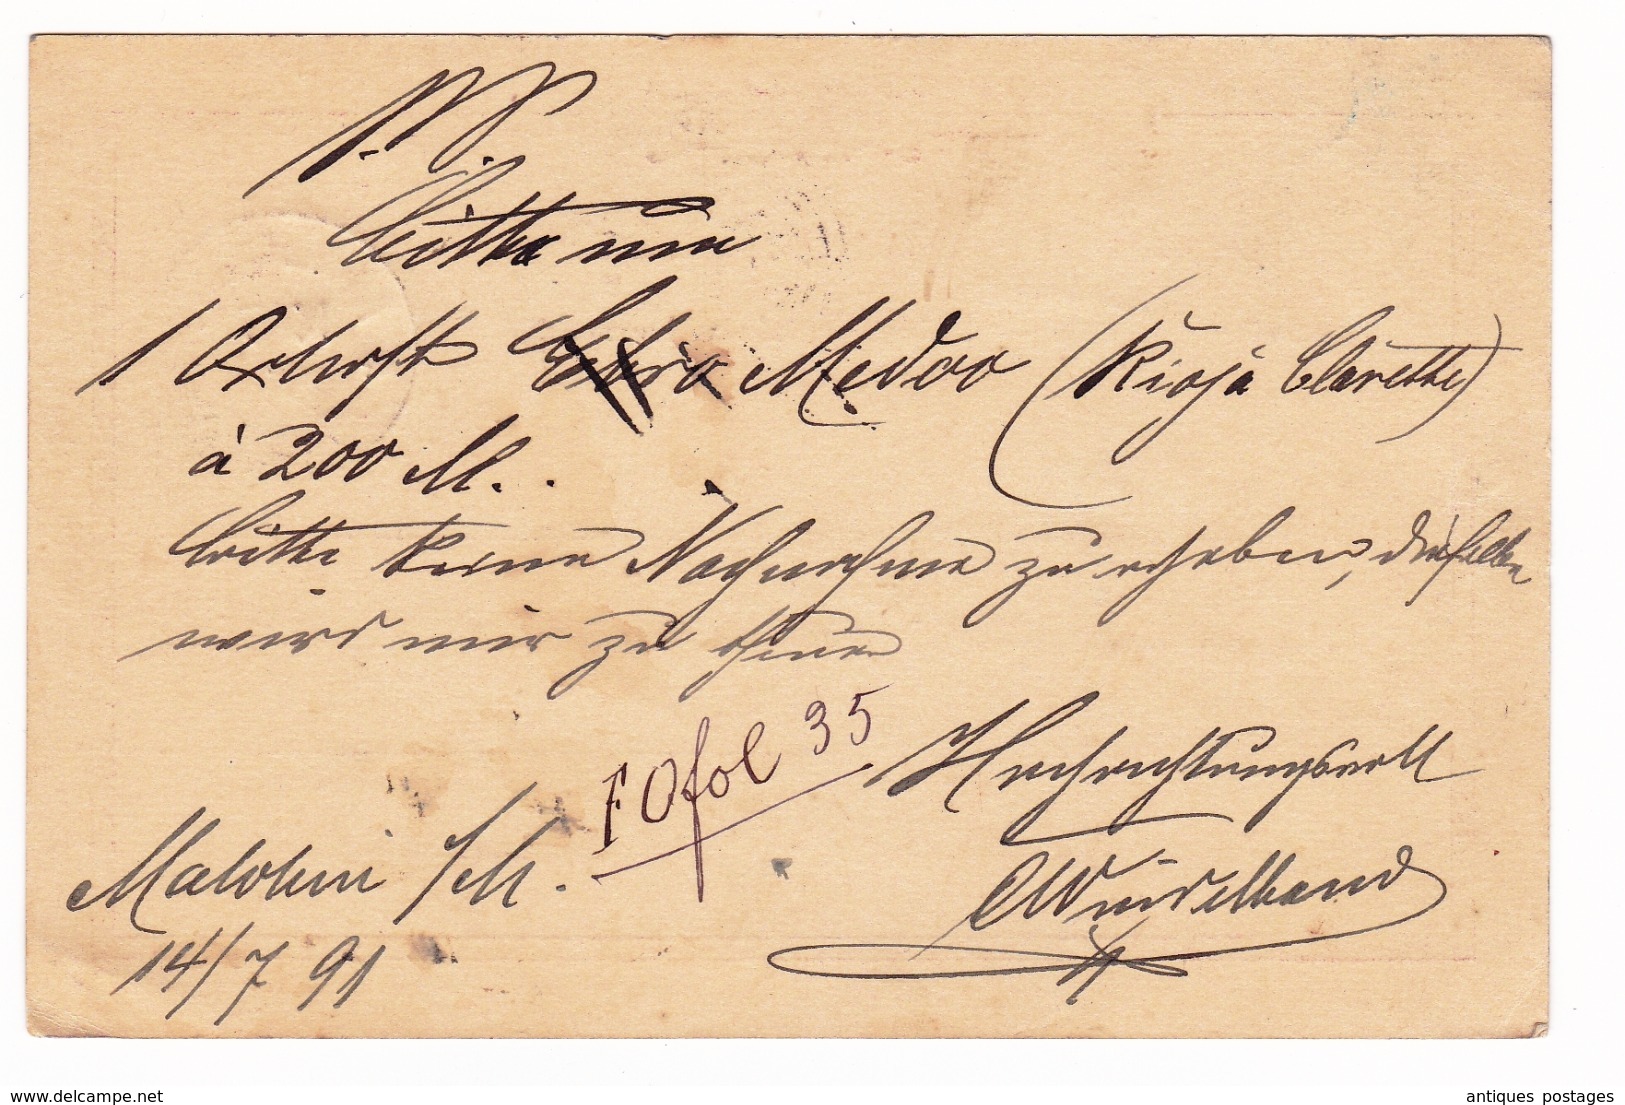 P. P.
Bitte um
1 Oxhoft Medoc (Rioja Clarette)
à 200 M..
Bitte keine Nachnahme zu erheben, dieselbe
wird mir zu theuer
Hochachtungsvoll
35
14/7 91
antiques postages
www.delcampe.net